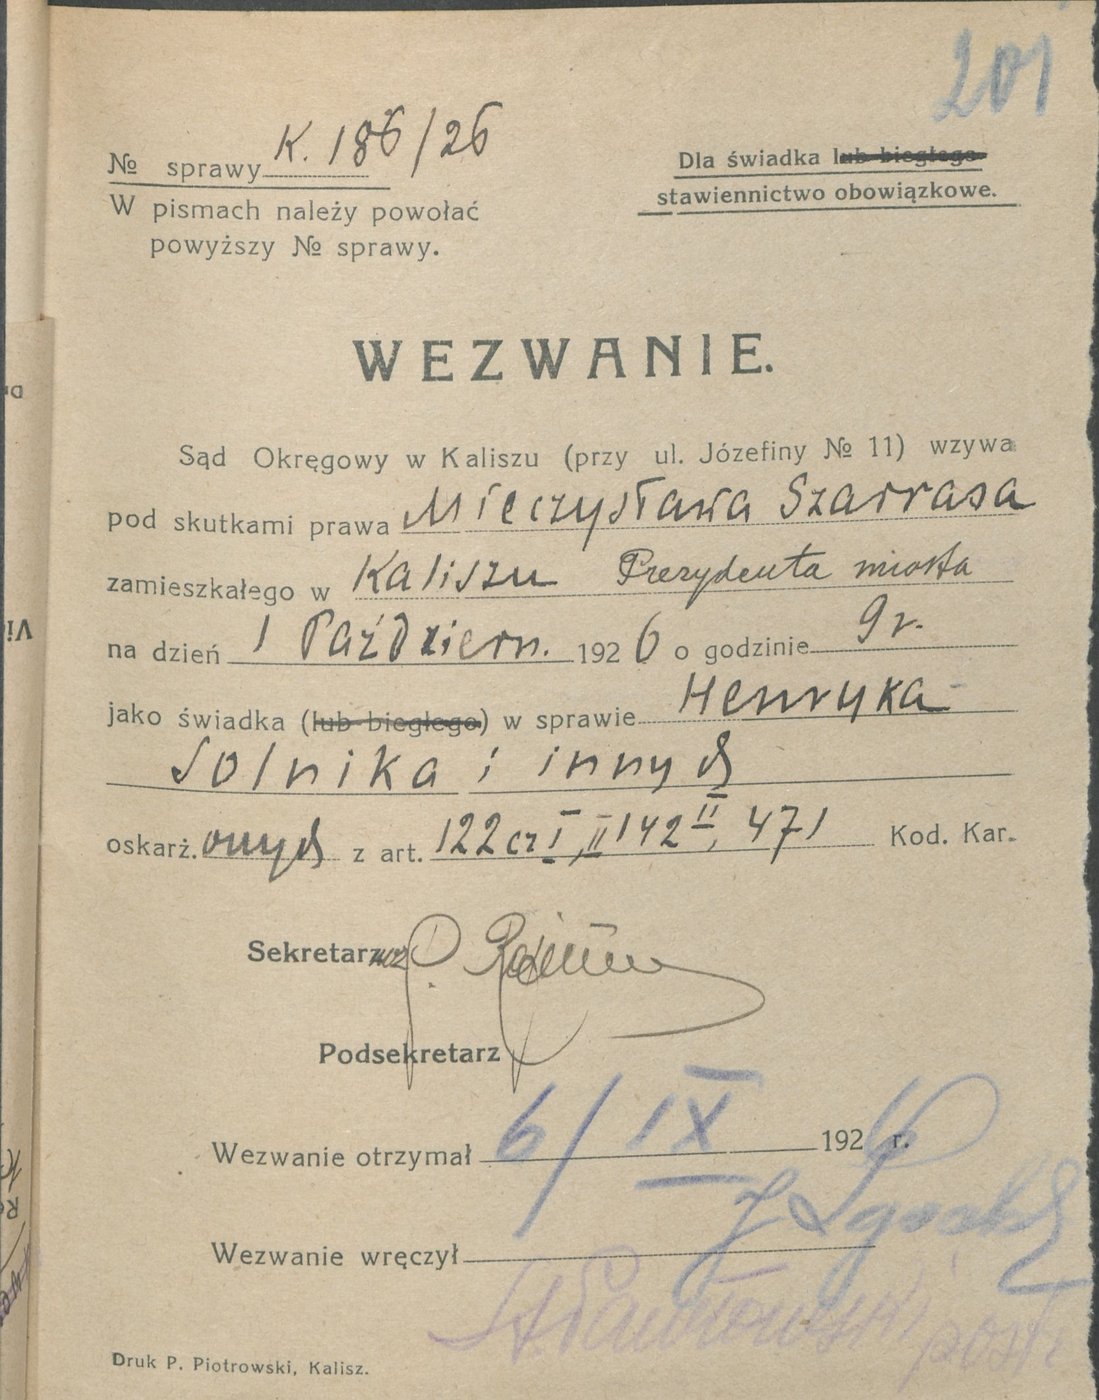 201
№ sprawy K. 186/26
W pismach należy powołać
powyższy № sprawy.
Dla świadka lub biegłego
stawiennictwo obowiązkowe.
WEZWANIE.
Sąd Okręgowy w Kaliszu (przy ul. Józefiny № 11) wzywa
pod skutkami prawa Mieczysława Szarrasa
zamieszkałego w Kaliszu Prezydenta miasta
na dzień 1 Październ. 1926 o godzinie 9 r.
jako świadka (lub biegłego) w sprawie Henryka
Solnika i innych
oskarż.onych z art. 122 cz I, II 142 II, 471 Kod. Kar.
Sekretarz
Podsekretarz
Wezwanie otrzymał 6/IX 1926 r.
Wezwanie wręczył
St Pawłowski post
Druk P. Piotrowski, Kalisz.